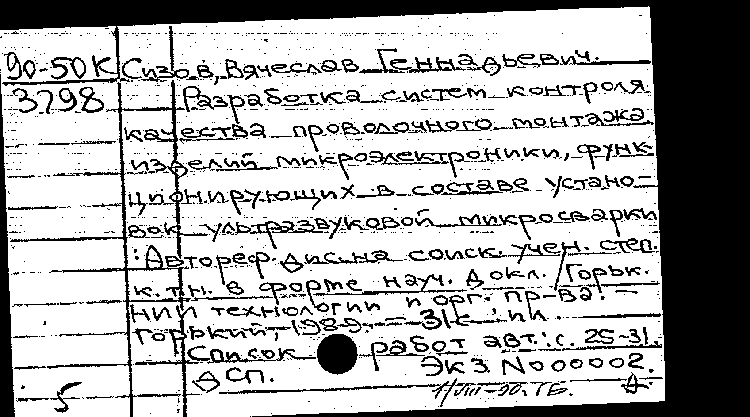 90-50К Сизов, Вячеслав Геннадьевич.
3798 Разработка систем контроля
качества проволочного монтажа
изделий микроэлектроники, функ-
ционирующих в составе устано-
вок ультразвуковой микросварки
: Автореф. дис. на соиск. учен. степ.
к.т.н. в форме науч. докл. / Горьк.
НИИ технологии и орг. пр-ва. —
Горький, 1989. — 31 с : ил.
Список работ авт.: с. 25-31.
ДСП. Экз N 000002.
5 11/VIII-90. Д.